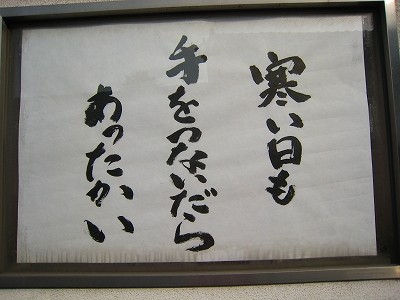 寒い日も
手をつないだら
あったかい